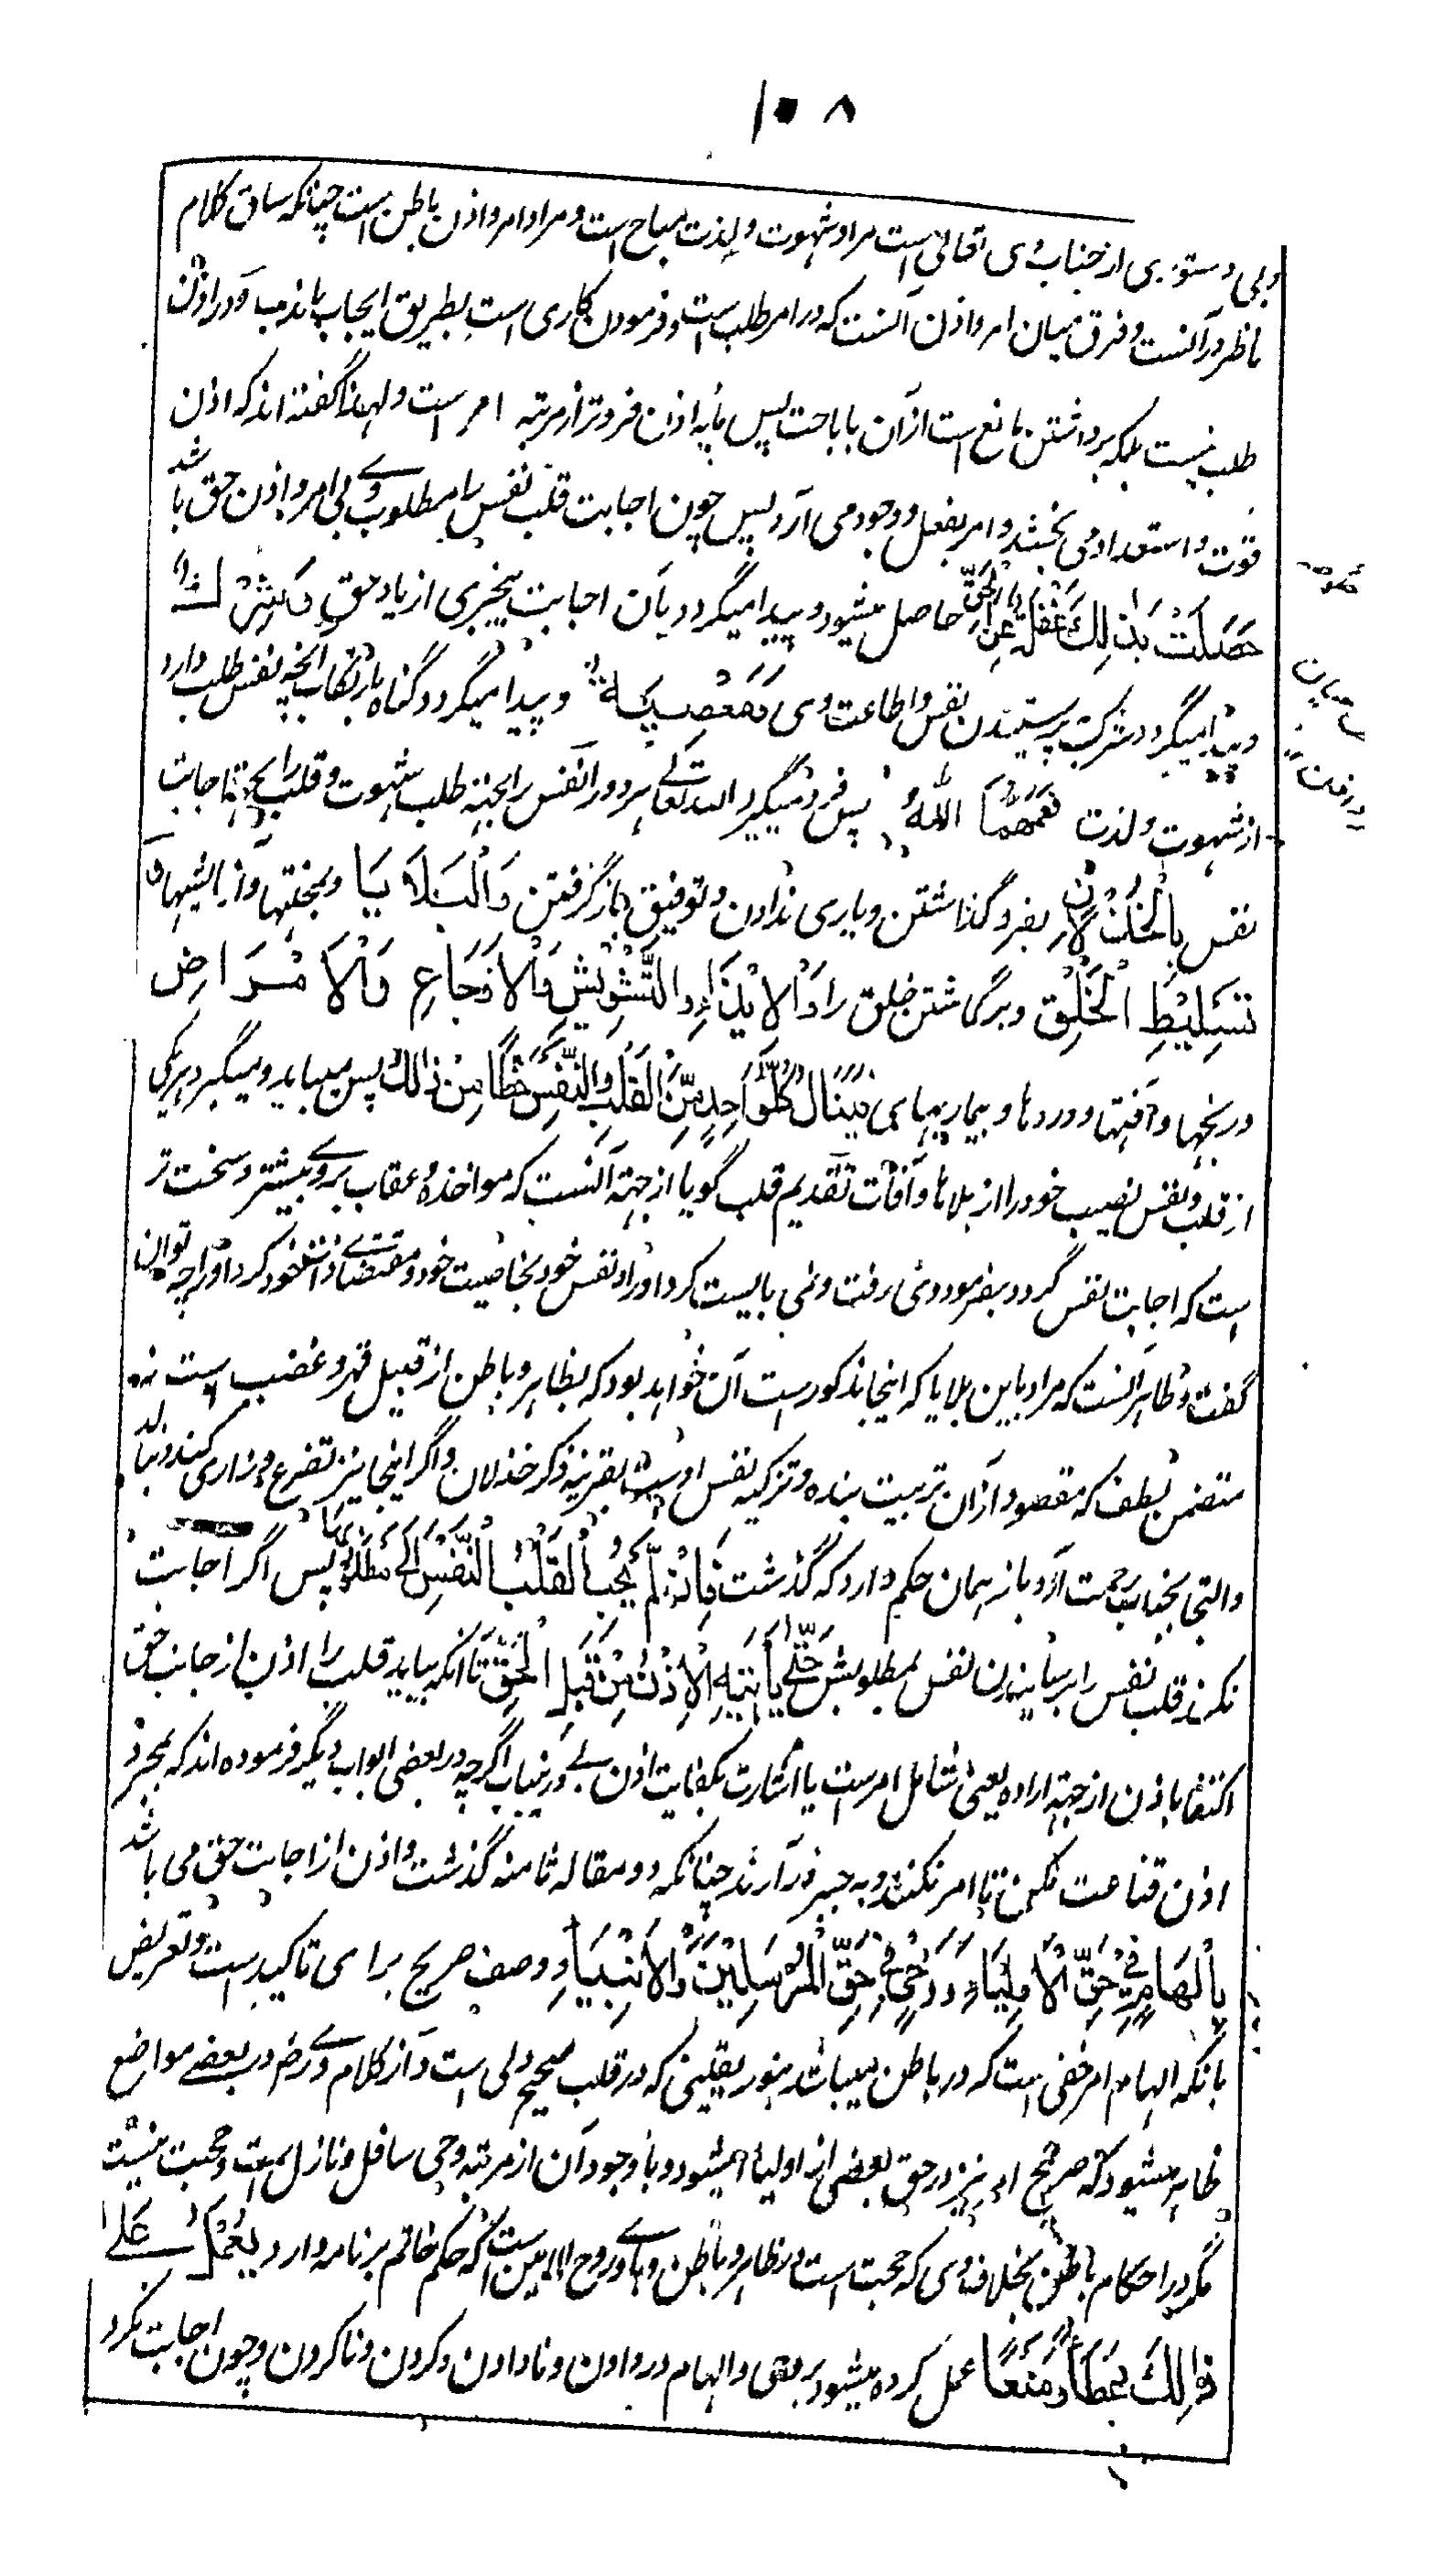 ۱۰۸
وبی دستوری از جناب وی تعالی است مراد شهوت و لذت مباح است و مراد امر و اذن باطن است چنانکه سیاق کلام
ناظر در آنست و فرق میان امر و اذن آنست که در امر طلب است و فرمودن کاری است بطریق ایجاب یا ندب و در اذن
طلب نیست بلکه برداشتن مانع است از آن باباحت پس پایه اذن فروتر از مرتبه امر است و لهذا گفته اند که اذن
قوت و استعداد می بخشد و امر بفعل و وجود می آرد پس چون اجابت قلب نفس را بمطلوب وے بی امر و اذن حق باشد
حَصَلَتْ بِذٰلِكَ غَفْلَةٌ عَنِ الْحَقِّ حاصل میشود و پیدا میگردد بآن اجابت بیخبری از یاد حق وَشِرْكٌ
و پیدا میگردد شرک بپرستیدن نفس و اطاعت وی وَمَعْصِيَةٌ و پیدا میگردد گناه بارتکاب آنچه نفس طلب دارد
از شهوت و لذت فَعَمَّهُمَا اللهُ پس فرو میگیرد الله تعالے هر دو را نفس را بجهته طلب شهوت و قلب را بجهته اجابت
نفس بِالْخُذْلَانِ بفرو گذاشتن و یاری ندادن و توفیق باز گرفتن وَالْبَلَايَا و بمحنتها و آزمایشها و
تَسْلِيْطِ الْخَلْقِ و برگماشتن خلق را وَالْاِيْذَاءِ وَالتَّشْوِيْشِ وَالْاَوْجَاعِ وَالْاَمْرَاضِ
و رنجها و آفتها و دردها و بیماریها فَيَنَالُ كُلُّ وَاحِدٍ مِّنَ الْقَلْبِ وَالنَّفْسِ حَظًّا مِنْ ذٰلِكَ پس مییابد و میگیرد هر یکی
از قلب و نفس نصیب خود را از بلاها و آفات تقدیم قلب گویا از جهته آنست که مواخذه و عقاب بروے بیشتر و سخت تر
است که اجابت نفس کرد و بفرموده وی رفت و نمی بایست کرد او را و نفس خود بخاصیت خود و مقتضاے ذات خود کرد او را چه توان
گفت و ظاهر آنست که مراد باین بلایا که اینجا مذکور است آن خواهد بود که بظاهر و باطن از قبیل قهر و غضب است نه
متضمن لطف که مقصود از آن تربیت بنده و تزکیه نفس اوست بقرینه ذکر خذلان و اگر اینجا نیز تضرع و زاری کند و بنالد
و التجا بجناب رحمت آرد باز همان حکم دارد که گذشت فَاِنْ لَّمْ يُجِبِ الْقَلْبُ النَّفْسَ اِلٰى مَطْلُوْبِهَا پس اگر اجابت
نکند قلب نفس را برسانیدن نفس بمطلوبش حَتّٰى يَأْتِيَهِ الْاِذْنُ مِنْ قِبَلِ الْحَقِّ تا آنکه بیاید قلب را اذن از جانب حق
اکتفا باذن از جهته اراده یعنی شامل امر است یا اشارت بکفایت اذن بے در نیاب اگرچه در بعضی ابواب دیگر فرموده اند که بمجرد
اذن قناعت نکن تا امر نکنند و به جبر در آرند چنانکه در مقاله ثامنه گذشت و اذن از اجابت حق می باشد
بِاِلْهَامٍ فِيْ حَقِّ الْاَوْلِيَاءِ وَوَحْيٍ فِيْ حَقِّ الْمُرْسَلِيْنَ وَالْاَنْبِيَاءِ و وصف صریح برای تاکید است و تعریض
بانکه الهام امر خفی است که در باطن میباشد بنور یقینی که در قلب صحیح ولی است و از کلام وے رض در بعضے مواضع
ظاهر میشود که صریح امر نیز در حق بعضی از اولیا میشود و با وجود آن از مرتبه وحی سافل و نازل است و حجت نیست
مگر در احکام باطن بخلاف وحی که حجت است در ظاهر و باطن و روح الامین است که حکم خاتم بر نامه دارد يَعْمَلُ عَلٰى
ذٰلِكَ عَطَاءً وَمَنْعًا عمل کرده میشود بر وحی و الهام در دادن و نادادن و کردن و ناکردن و چون اجابت نکرد